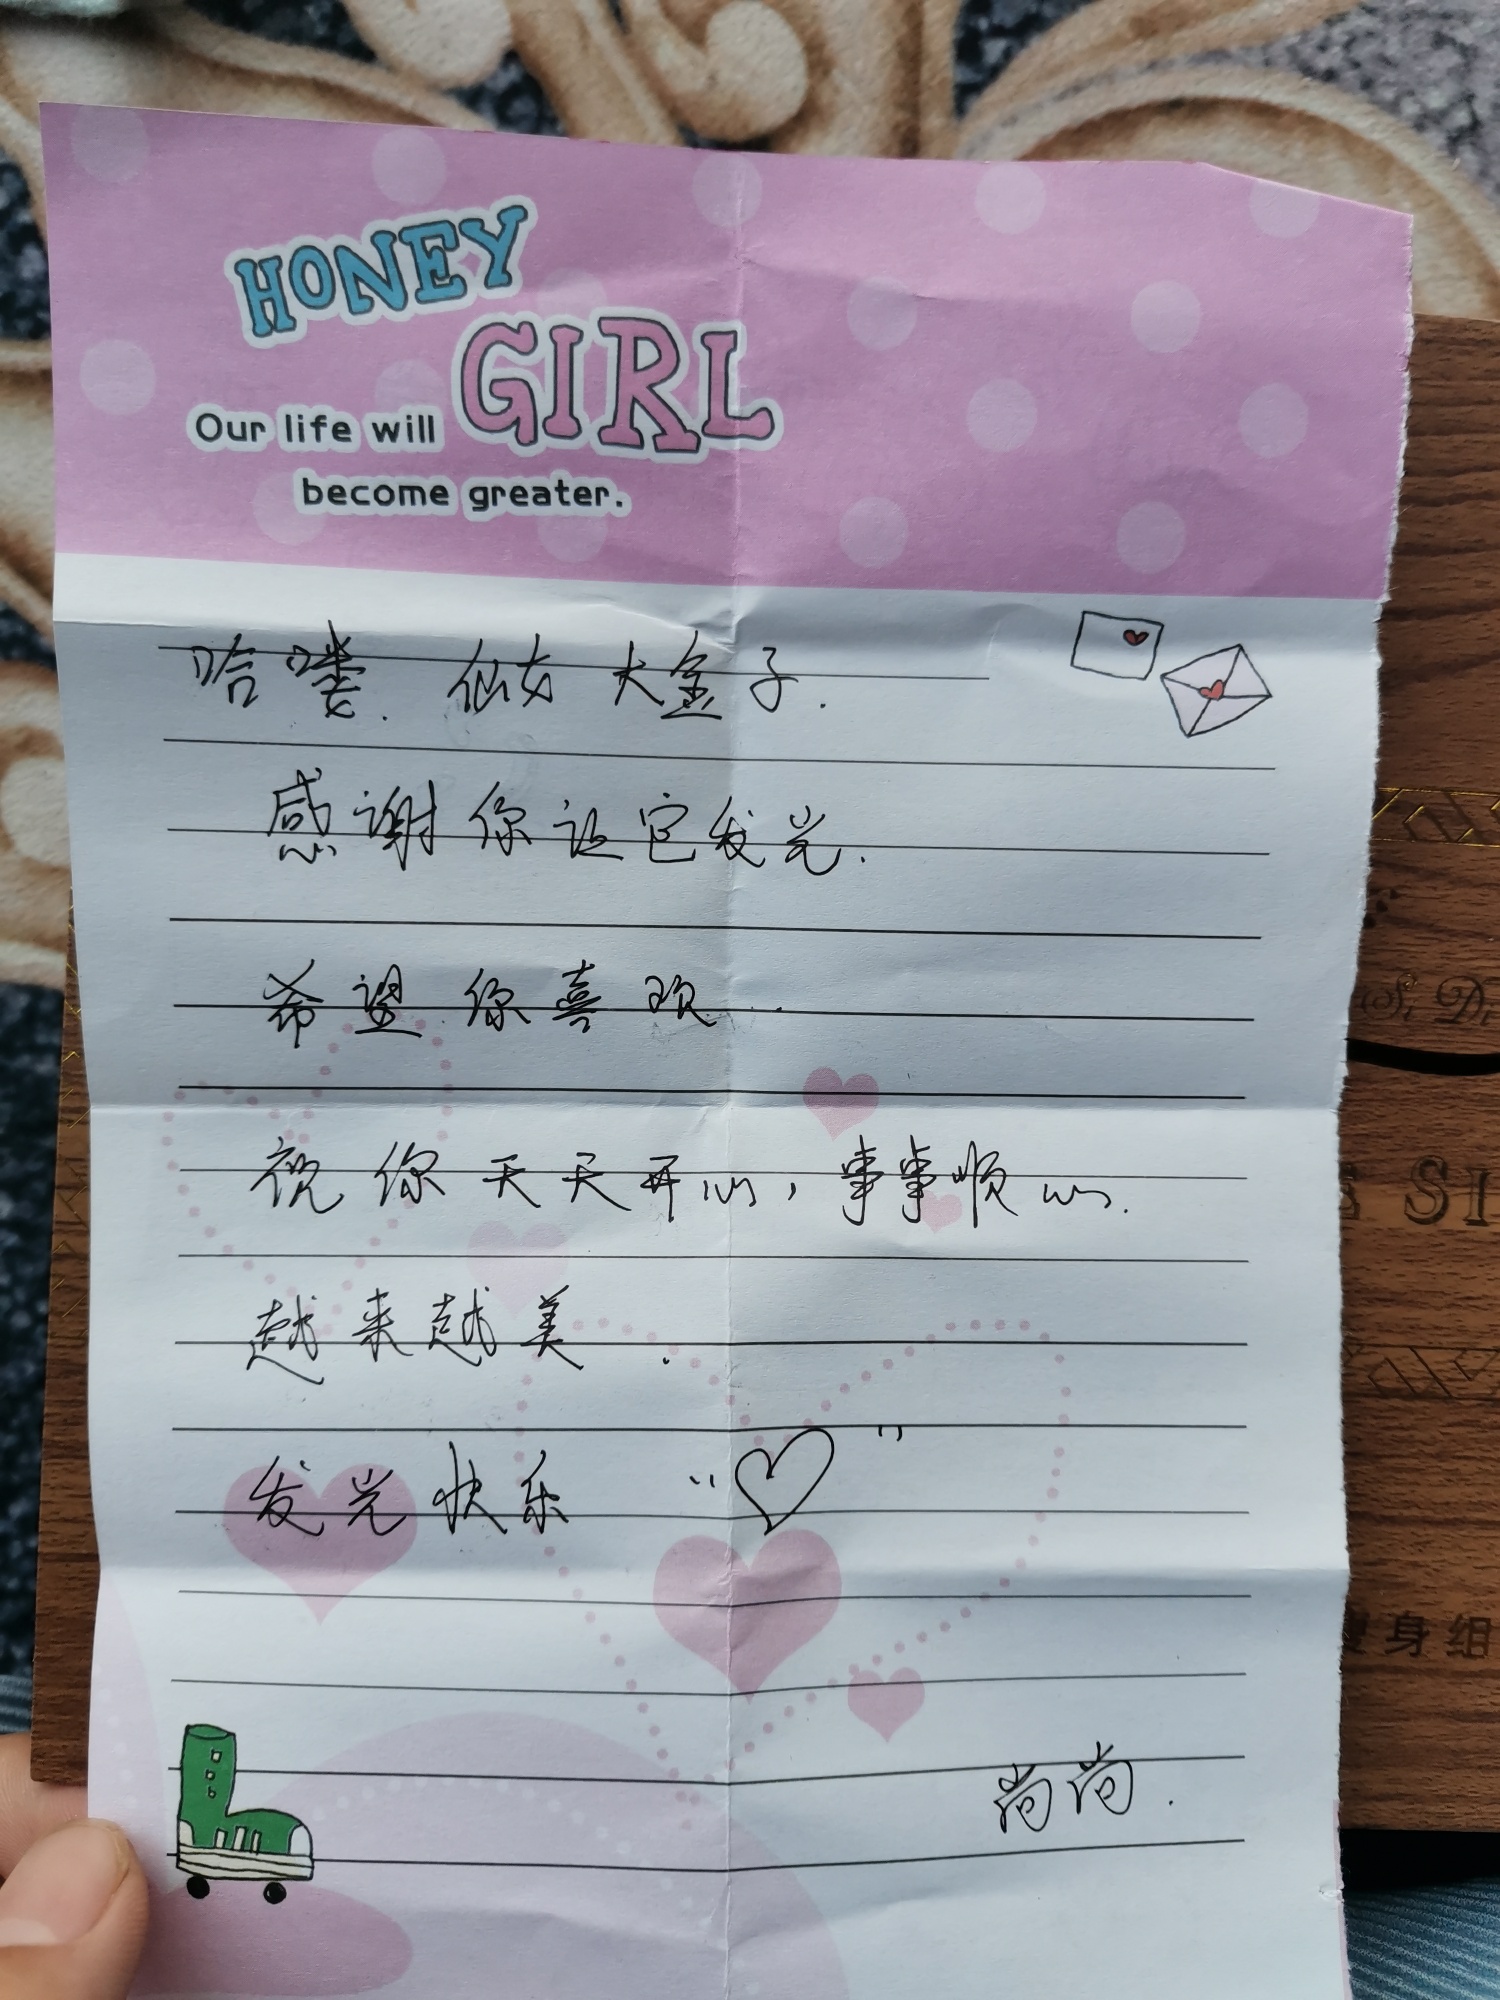 HONEY
GIRL
Our life will
become greater.
哈喽. 仙女大盒子.
感谢你让它发光.
希望你喜欢..
祝你天天开心，事事顺心.
越来越美.
发光快乐 “♡”
尚尚.
S. D.
SI
身组